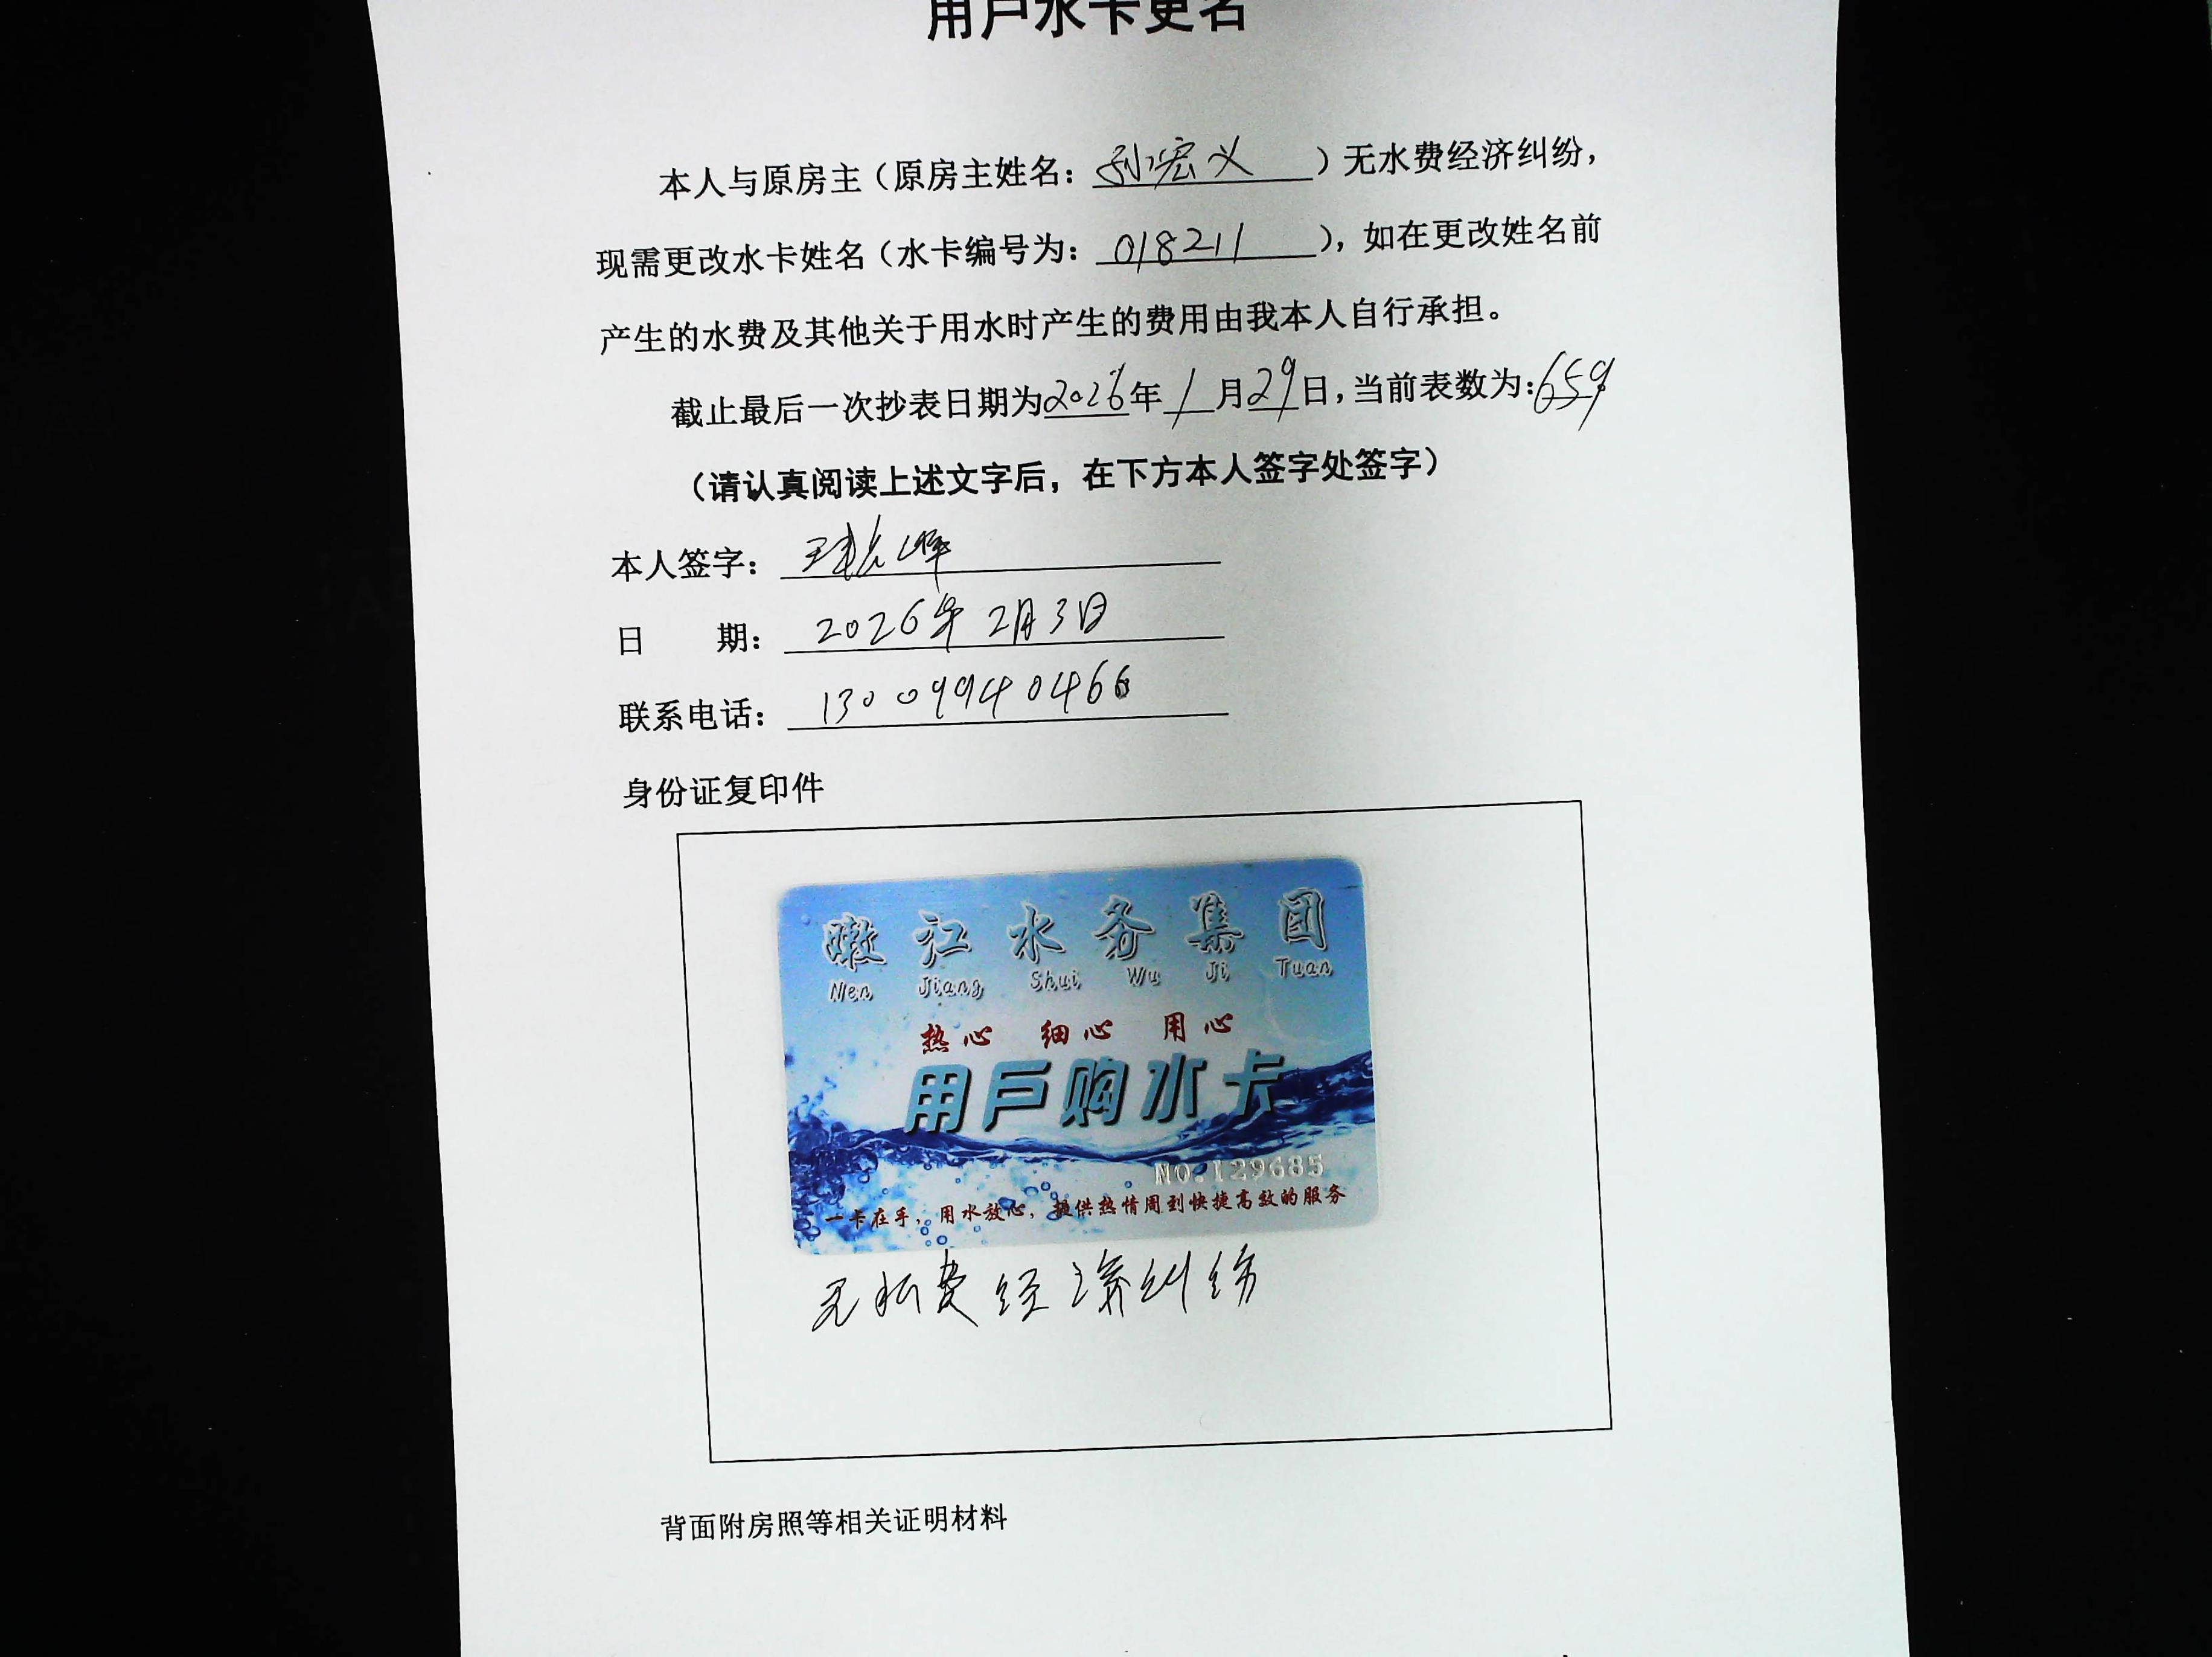 用户水卡更名
本人与原房主（原房主姓名：孙宏义）无水费经济纠纷，
现需更改水卡姓名（水卡编号为：018211），如在更改姓名前
产生的水费及其他关于用水时产生的费用由我本人自行承担。
截止最后一次抄表日期为2026年1月29日，当前表数为：659
（请认真阅读上述文字后，在下方本人签字处签字）
本人签字：
日期：2026年2月3日
联系电话：13009940466
身份证复印件
嫩江水务集团
Nen Jiang Shui Wu Ji Tuan
热心 细心 用心
用户购水卡
NO.129685
一卡在手，用水放心，提供热情周到快捷高效的服务
无水费经济纠纷
背面附房照等相关证明材料